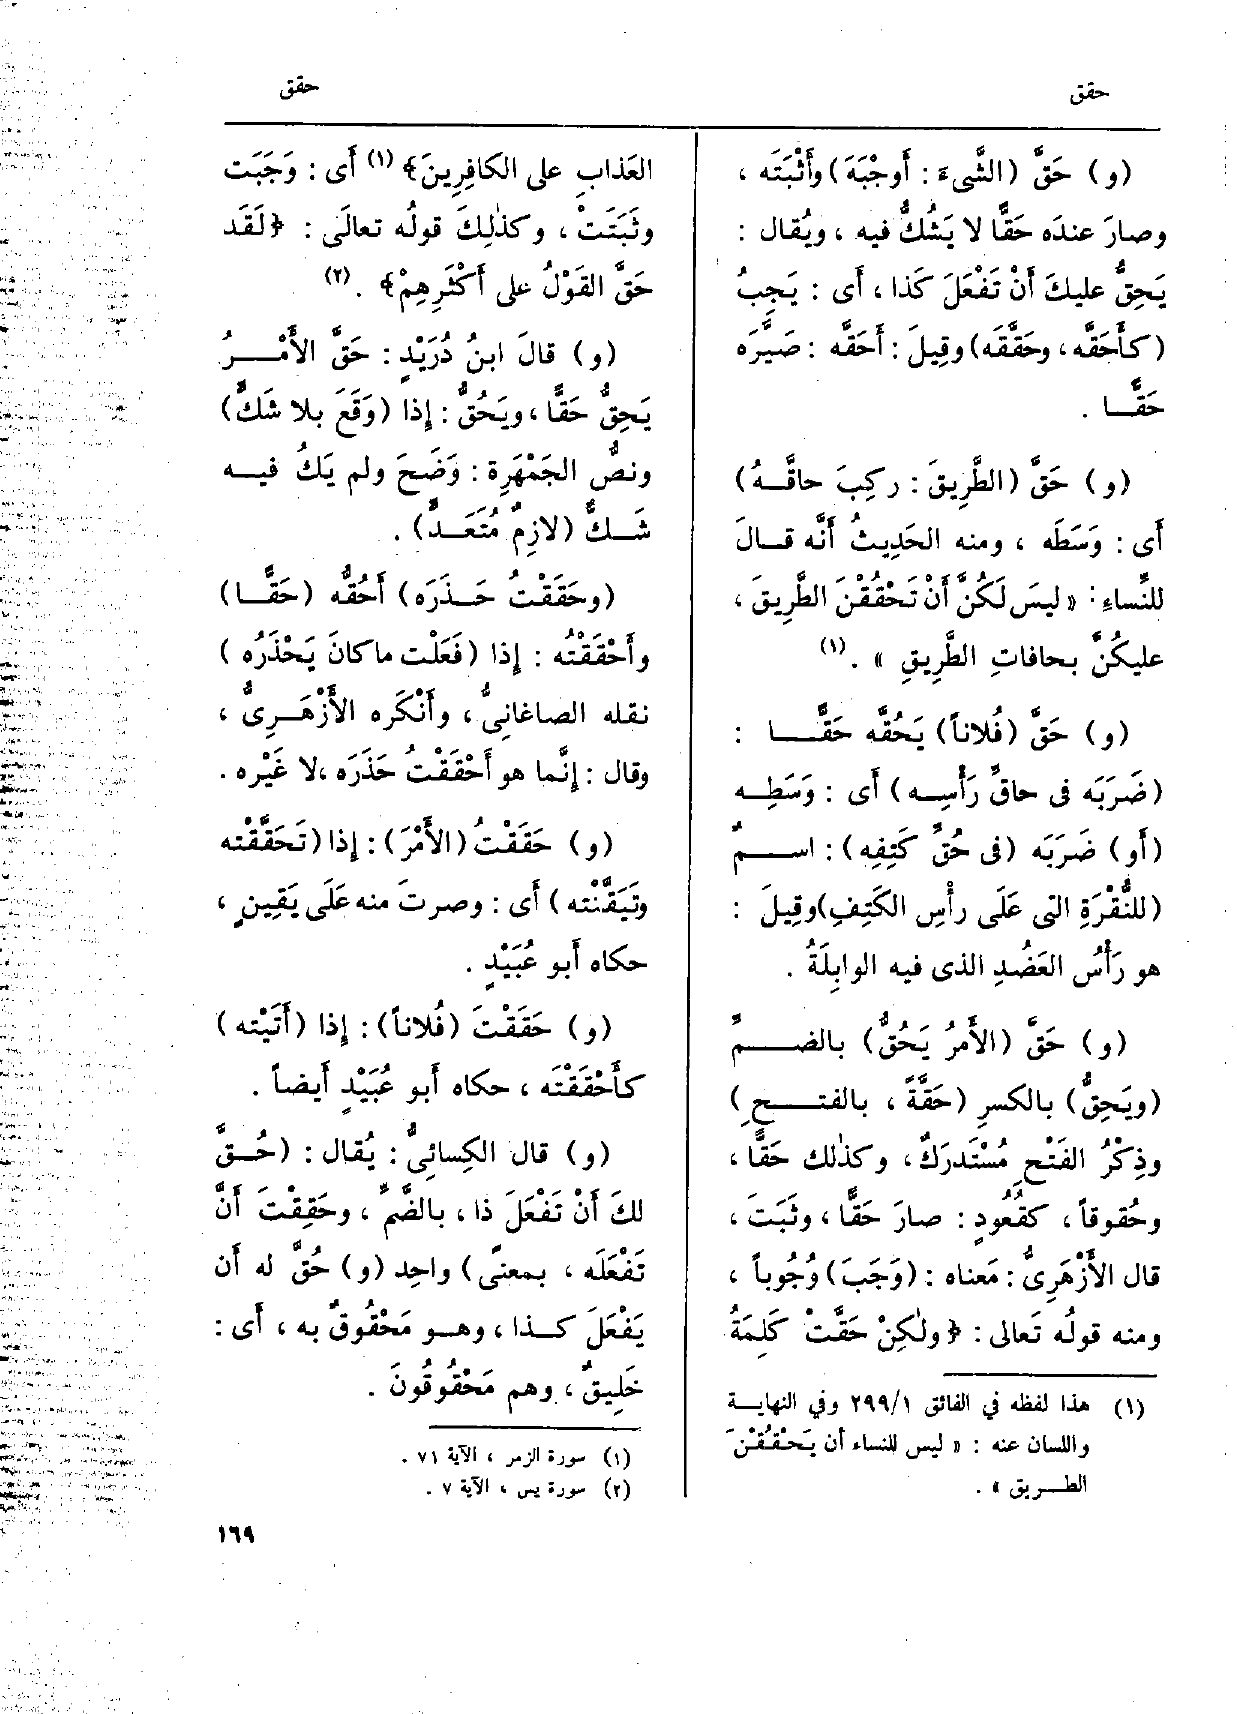 حقق
حقق
(و) حَقَّ (الشَّىءَ : أَوجْبَهَ) وأَثْبَتَه ،
وصارَ عندَه حَقًّا لا يَشُكُّ فيه ، ويُقال :
يَحِقُّ عليكَ أَنْ تَفْعَلَ كَذا ، أَى : يَجِبُ
(كأَحَقَّه ، وحَقَّقَه) وقِيلَ : أَحَقَّه : صَيَّرَه
حَقًّا .
(و) حَقَّ (الطَّرِيقَ : ركِبَ حاقَّهُ)
أَى : وَسَطَه ، ومنه الحَدِيثُ أَنَّه قالَ
للنِّساءِ : « ليسَ لَكُنَّ أَنْ تَحْقُقْنَ الطَّرِيقَ ،
عليكُنَّ بحافاتِ الطَّرِيقِ » . (١)
(و) حَقَّ (فُلاناً) يَحُقُّه حَقًّا :
(ضَرَبَه فى حاقِّ رَأْسِه) أَى : وَسَطِه
(أَو) ضَرَبَه (فى حُقِّ كَتِفِه) : اسمٌ
(للنُّقْرَةِ التى عَلَى رأْسِ الكَتِفِ) وقِيلَ :
هو رَأْسُ العَضُدِ الذى فيه الوابِلَةُ .
(و) حَقَّ (الأَمرُ يَحُقُّ) بالضمِّ
(ويَحِقُّ) بالكسرِ (حَقَّةً ، بالفتحِ)
وذِكْرُ الفَتْحِ مُسْتَدرَكٌ ، وكذٰلك حَقًّا ،
وحُقوقاً ، كقُعُودٍ : صارَ حَقًّا ، وثَبَتَ ،
قال الأَزْهَرِىُّ : مَعناه : (وَجَبَ) وُجُوباً ،
ومنه قولُه تَعالى : ﴿ ولٰكِنْ حَقَّتْ كَلِمَةُ
(١) هذا لفظه في الفائق ٢٩٩/١ وفي النهاية
واللسان عنه : « ليس للنساء أن يَحْقُقْنَ
الطريق » .
العَذابِ على الكافِرِينَ﴾ (١) أَى : وَجَبَت
وثَبَتَتْ ، وكذٰلِكَ قولُه تعالَى : ﴿لَقَد
حَقَّ القَوْلُ على أَكْثَرِهِمْ﴾ . (٢)
(و) قالَ ابنُ دُرَيْدٍ : حَقَّ الأَمْرُ
يَحِقُّ حَقًّا ، ويَحُقُّ : إذا (وَقَعَ بلا شَكٍّ)
ونصُّ الجَمْهَرِة : وَضَحَ ولم يَكُ فيه
شَكٌّ (لازِمٌ مُتَعَدٍّ) .
(وحَقَقْتُ حَذَرَه) أَحُقُّه (حَقًّا)
وأَحْقَقْتُه : إذا (فَعَلْت ماكانَ يَحْذَرُه )
نقله الصاغانِىُّ ، وأَنْكَره الأَزْهَرِىُّ ،
وقال : إنَّما هو أَحْقَقْتُ حَذَرَه ،لا غَيْره .
(و) حَقَقْتُ (الأَمْرَ) : إذا (تَحَقَّقْته
وتَيَقَّنْته) أَى : وصرتَ منه عَلَى يَقِينٍ ،
حكاه أَبو عُبَيْدٍ .
(و) حَقَقْتَ (فُلاناً) : إذا (أَتَيْته)
كأَحْقَقْتَه ، حكاه أَبو عُبَيْدٍ أَيضاً .
(و) قال الكِسائِىُّ : يُقال : (حُقَّ
لكَ أَنْ تَفْعَلَ ذا ، بالضَّمِّ ، وحَقِقْتَ أَنَّ
تَفْعَلَه ، بمعنًى) واحِد (و) حُقَّ له أَن
يَفْعَلَ كذا ، وهو مَحْقُوقٌ به ، أَى :
خَلِيقٌ ، وهم مَحْقُوقُونَ .
(١) سورة الزمر ، الآية ٧١ .
(٢) سورة يس ، الآية ٧ .
١٦٩